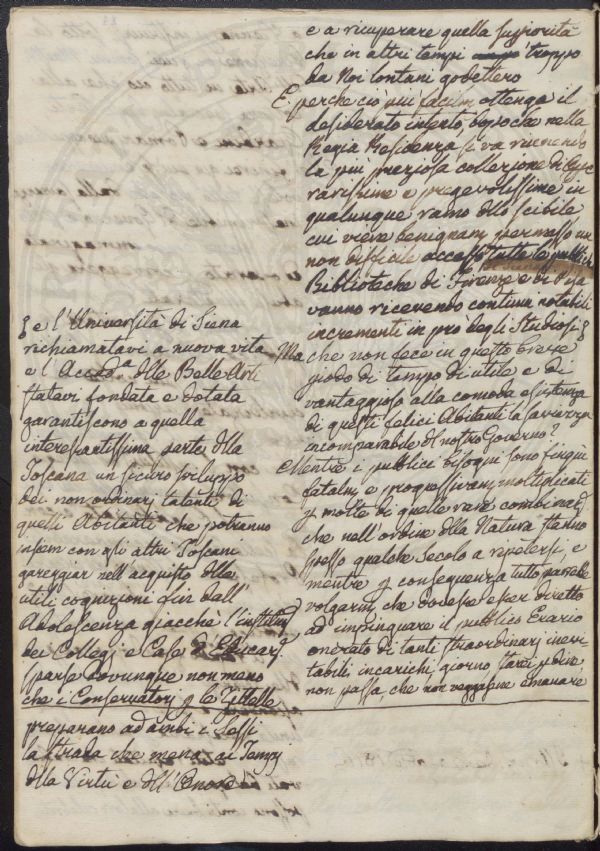 e a ricuperare quella supiorità
che in altri tempi troppo
da Noi lontani godettero
E perche ciò più facilm. ottenga il
desiderato intento, la nella
Regia Residenza si va riunendo
la più preziosa collezione di
rarissime e pregevolissime in
qualunque ramo dllo scibile
cui viene benignam. permesso un
non difficile accesso, tutte le pubblich
Biblioteche di Firenze e di Pisa
vanno ricevendo continui notabili
incrementi in prò degli Studiosi
Ma che non fece in questo breve
piodo di tempo di utile e di
vantaggioso alla comoda esistenza
di questi felici Abitanti la saviezza
incomparabile dl nostro Governo?
Mentre i pubblici bisogni sono
fatalm. e progressivam. moltiplicati
p molte di quelle rare combinaz.
che nell'ordine dlla Natura stanno
spesso qualche secolo a repetersi, e
mentre p conseguenza tutto parrebbe
volgarm. che dovesse esser diretto
ad impinguare il pubblico Erario
onerato di tanti straordinarj inevi
tabili incarichi, giorno starei p dire
non passa, che non veggansene emanare
e l'Università di Siena
richiamatavi a nuova vita
e l'Accad.a dlle Belle Arti
statavi fondata e dotata
garantiscono a quella
interessantissima parte dlla
Toscana un sicuro sviluppo
dei non ordinarj talenti di
quelli Abitanti che potranno
insiem con gli altri Toscani
gareggiar nell'acquisto dlle
utili cognizioni fin dall'
Adolescenza giacchè l'instituz.
dei Collegj e Case d'Educaz.
sparse dovunque non meno
che i Conservatorj p le Zittelle
preparano ad ambi i Sessi
la strada che mena ai Tempj
dlla Virtù e dll'Onore